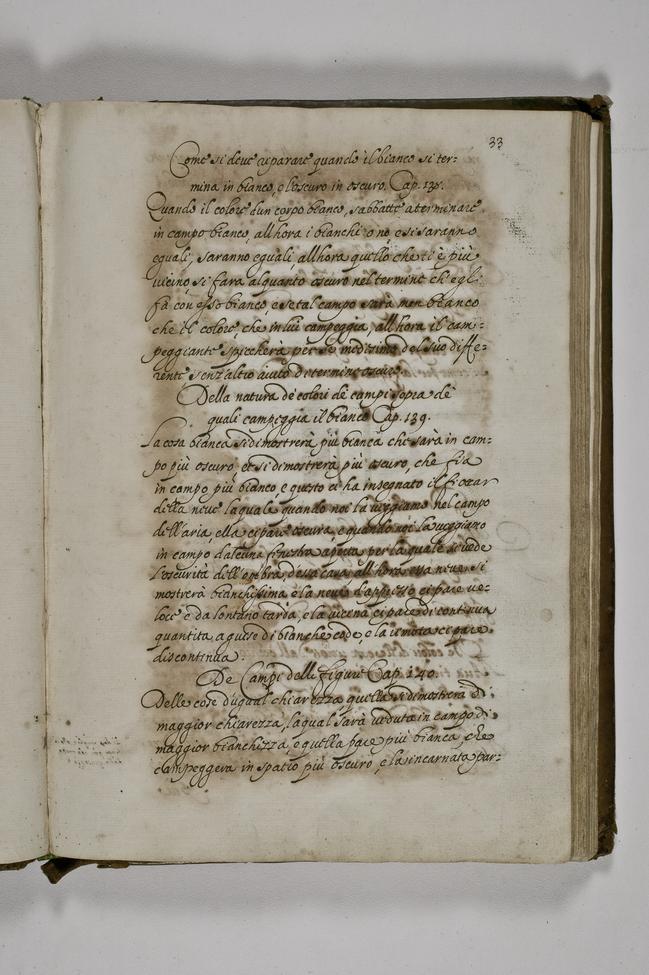 33
Come si deve riparare quando il bianco si ter:
mina in bianco, e l'oscuro in oscuro. Cap. 138.
Quando il colore d'un corpo bianco, s'abbatte a terminare
in campo bianco, all'hora i bianchi o nò, e si saranno
eguali, saranno eguali, all'hora quello che ti è più
vicino, si farà alquanto oscuro nel termine ch'egli
fà con esso bianco, e se tal campo sarà men bianco
che il colore, che in lui campeggia, all'hora il cam:
peggiante spiccherà per se medesimo del suo diffe:
rente senz'altro aiuto di termine oscuro.
Della natura de colori de campi sopra de
quali campeggia il bianco Cap. 139.
La cosa bianca si dimostrerà più bianca che sarà in cam:
po più oscuro, et si dimostrerà più oscuro, che fia
in campo più bianco, e questo ci ha insegnato il fioccar
della neve la quale quando noi la veggiamo nel campo
dell'aria, ella ci pare oscura, e quando noi la veggiamo
in campo d'alcuna finestra aperta per la quale si vede
l'oscurità dell'ombra d'essa casa, all'hora essa neve si
mostrerà bianchissima, e la neve d'appresso ci pare ve:
loce e da lontano tarda, e la vicina ci pare di continua
quantita a guisa di bianche corde, e la remota ci pare
discontinua.
De Campi delle figure Cap. 140.
Delle cose d'ugual chiarezza quella si dimostrerà di
maggior chiarezza, la qual sarà veduta in campo di
maggior bianchezza, e quella pare più bianca, che
campeggera in spatio più oscuro, e la incarnata par: